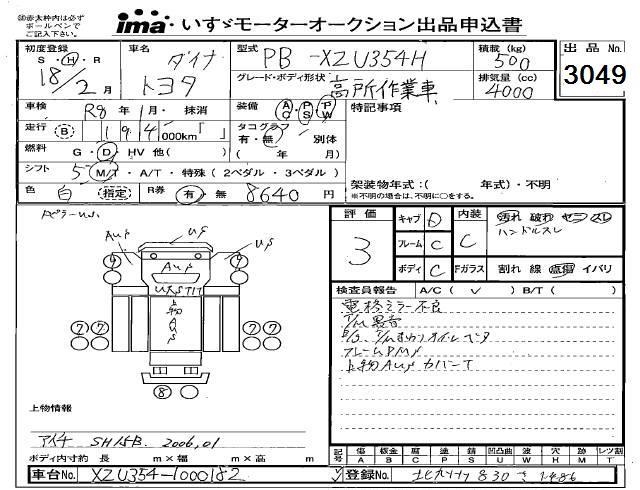 ㊟赤太枠内は必ず
ボールペンで
ご記入下さい。
ima いすゞモーターオークション出品申込書
初度登録 S・H・R 18/2月
車名 ダイナ トヨタ
型式 PB-XZU354H
積載(kg) 500
出品No.
3049
グレード・ボディ形状 高所作業車
排気量(cc) 4000
車検 R8年1月・抹消
装備 AC PS PW
特記事項
走行 B 194,000km「 」
タコグラフ 有・無 別体
( 年 月)
燃料 G・D・HV 他( )
シフト 5 M/T・A/T・特殊(2ペダル・3ペダル)
架装物年式:( 年式)・不明
※不明の場合は、不明に○をする。
色 白 指定 R券 有・無 8640円
評価 3
キャブ D
フレーム C
ボディ C
内装 C
汚れ 破れ ヤニ スレ
ハンドルスレ
Fガラス 割れ 線 点傷 イバリ
検査員報告 A/C(✓) B/T( )
電格ミラー不良
T/M異音
フレームPMS
上物AUS カバーT
AUS
US
US
AUS
上物
7 7
7 7
8
上物情報
アイチ SH15B. 2006,01
ボディ内寸約 長 m×幅 m×高 m
車台No. XZU354-1000182
記号
傷 A
板金 B
腐 C
塗 P
錆 S
凹凸曲 U
波 W
穴 H
跡 M
レツ割 T
登録No. 北九州 830 さ 1486